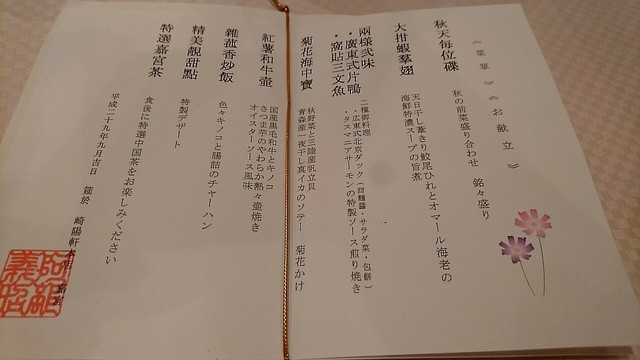 《菜單》《お献立》
秋天每位碟
秋の前菜盛り合わせ　銘々盛り
大拑蝦羣翅
天日干し葦きり鮫尾びれとオマール海老の
海鮮特濃スープの旨煮
兩樣弐味
・廣東式片鴨
・窩貼三文魚
二種御料理
・広東式北京ダック（甜麺醤・サラダ菜・包餅）
・タスマニアサーモンの特製ソース煎り焼き
菊花海中寶
秋野菜と三陸産帆立貝
青森産一夜干し真イカのソテー　菊花かけ
紅薯和牛壷
国産黒毛和牛とキノコ
さつま芋のやわらか熱々壷焼き
オイスターソース風味
雜菰香炒飯
色々キノコと腸詰のチャーハン
精美靚甜點
特製デザート
特選嘉宮茶
食後に特選中国茶をお楽しみください
平成二十九年九月吉日　筵於　崎陽軒本店　嘉宮